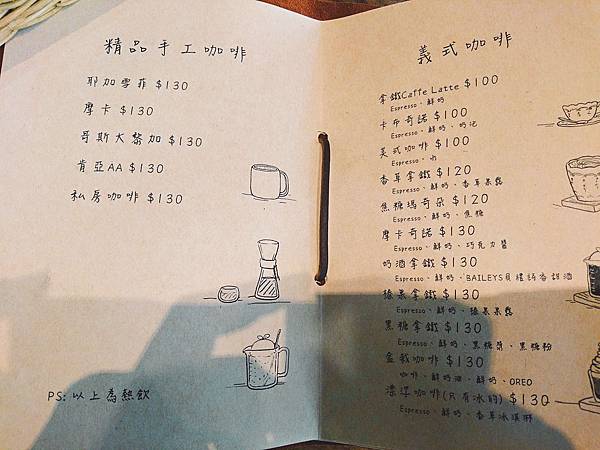 精品手工咖啡
耶加雪菲 $130
摩卡 $130
哥斯大黎加 $130
肯亞AA $130
私房咖啡 $130
PS: 以上為熱飲
義式咖啡
拿鐵Caffe Latte $100
Espresso、鮮奶
卡布奇諾 $100
Espresso、鮮奶、奶泡
美式咖啡 $100
Espresso、水
香草拿鐵 $120
Espresso、鮮奶、香草果露
焦糖瑪奇朵 $120
Espresso、鮮奶、焦糖
摩卡奇諾 $130
Espresso、鮮奶、巧克力醬
奶酒拿鐵 $130
Espresso、鮮奶、BAILEYS貝禮詩香甜酒
榛果拿鐵 $130
Espresso、鮮奶、榛果果露
黑糖拿鐵 $130
Espresso、鮮奶、黑糖漿、黑糖粉
盆栽咖啡 $130
咖啡、鮮奶油、鮮奶、OREO
漂浮咖啡(只有冰的) $130
Espresso、鮮奶、香草冰淇淋